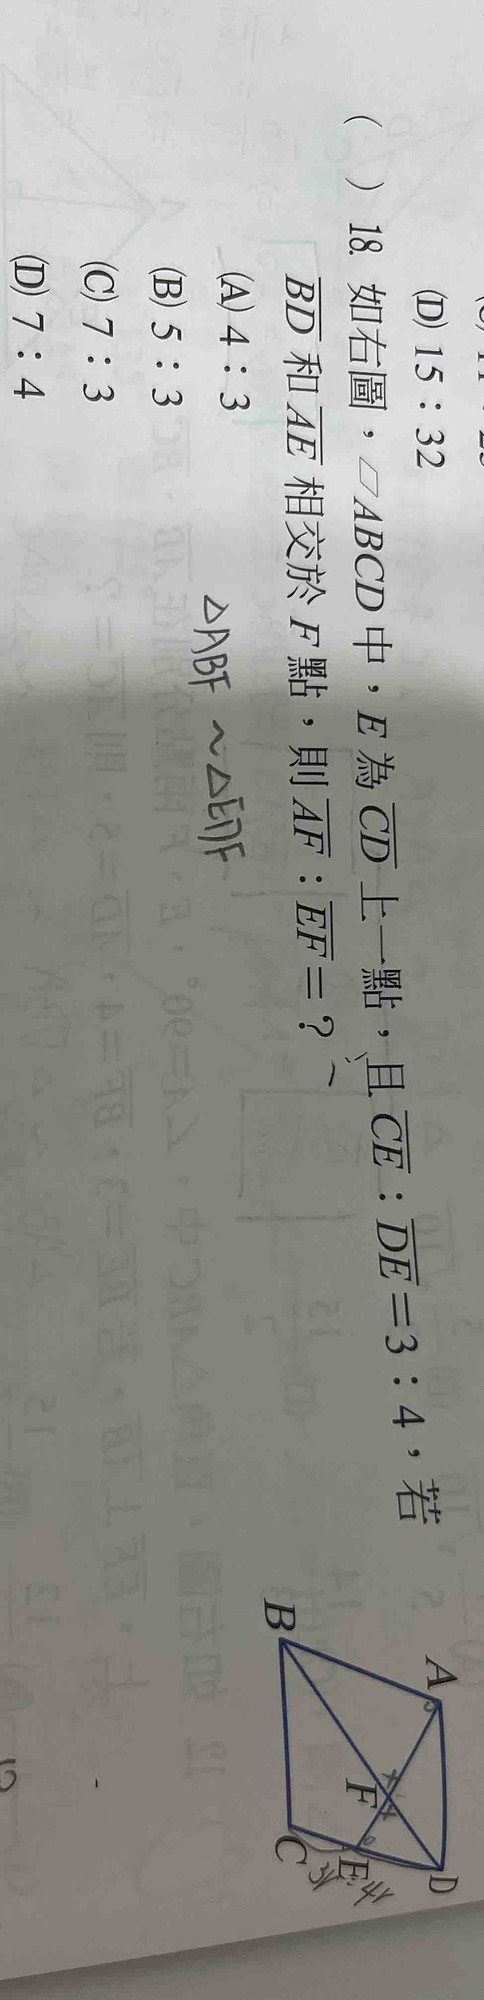 (D) 15：32
(　) 18. 如右圖，▱ABCD中，E為CD上一點，且CE：DE＝3：4，若
BD和AE相交於F點，則AF：EF＝？
(A) 4：3
(B) 5：3
(C) 7：3
(D) 7：4
△ABF ~ △EDF
A
B
C
D
E
F
3r
4r